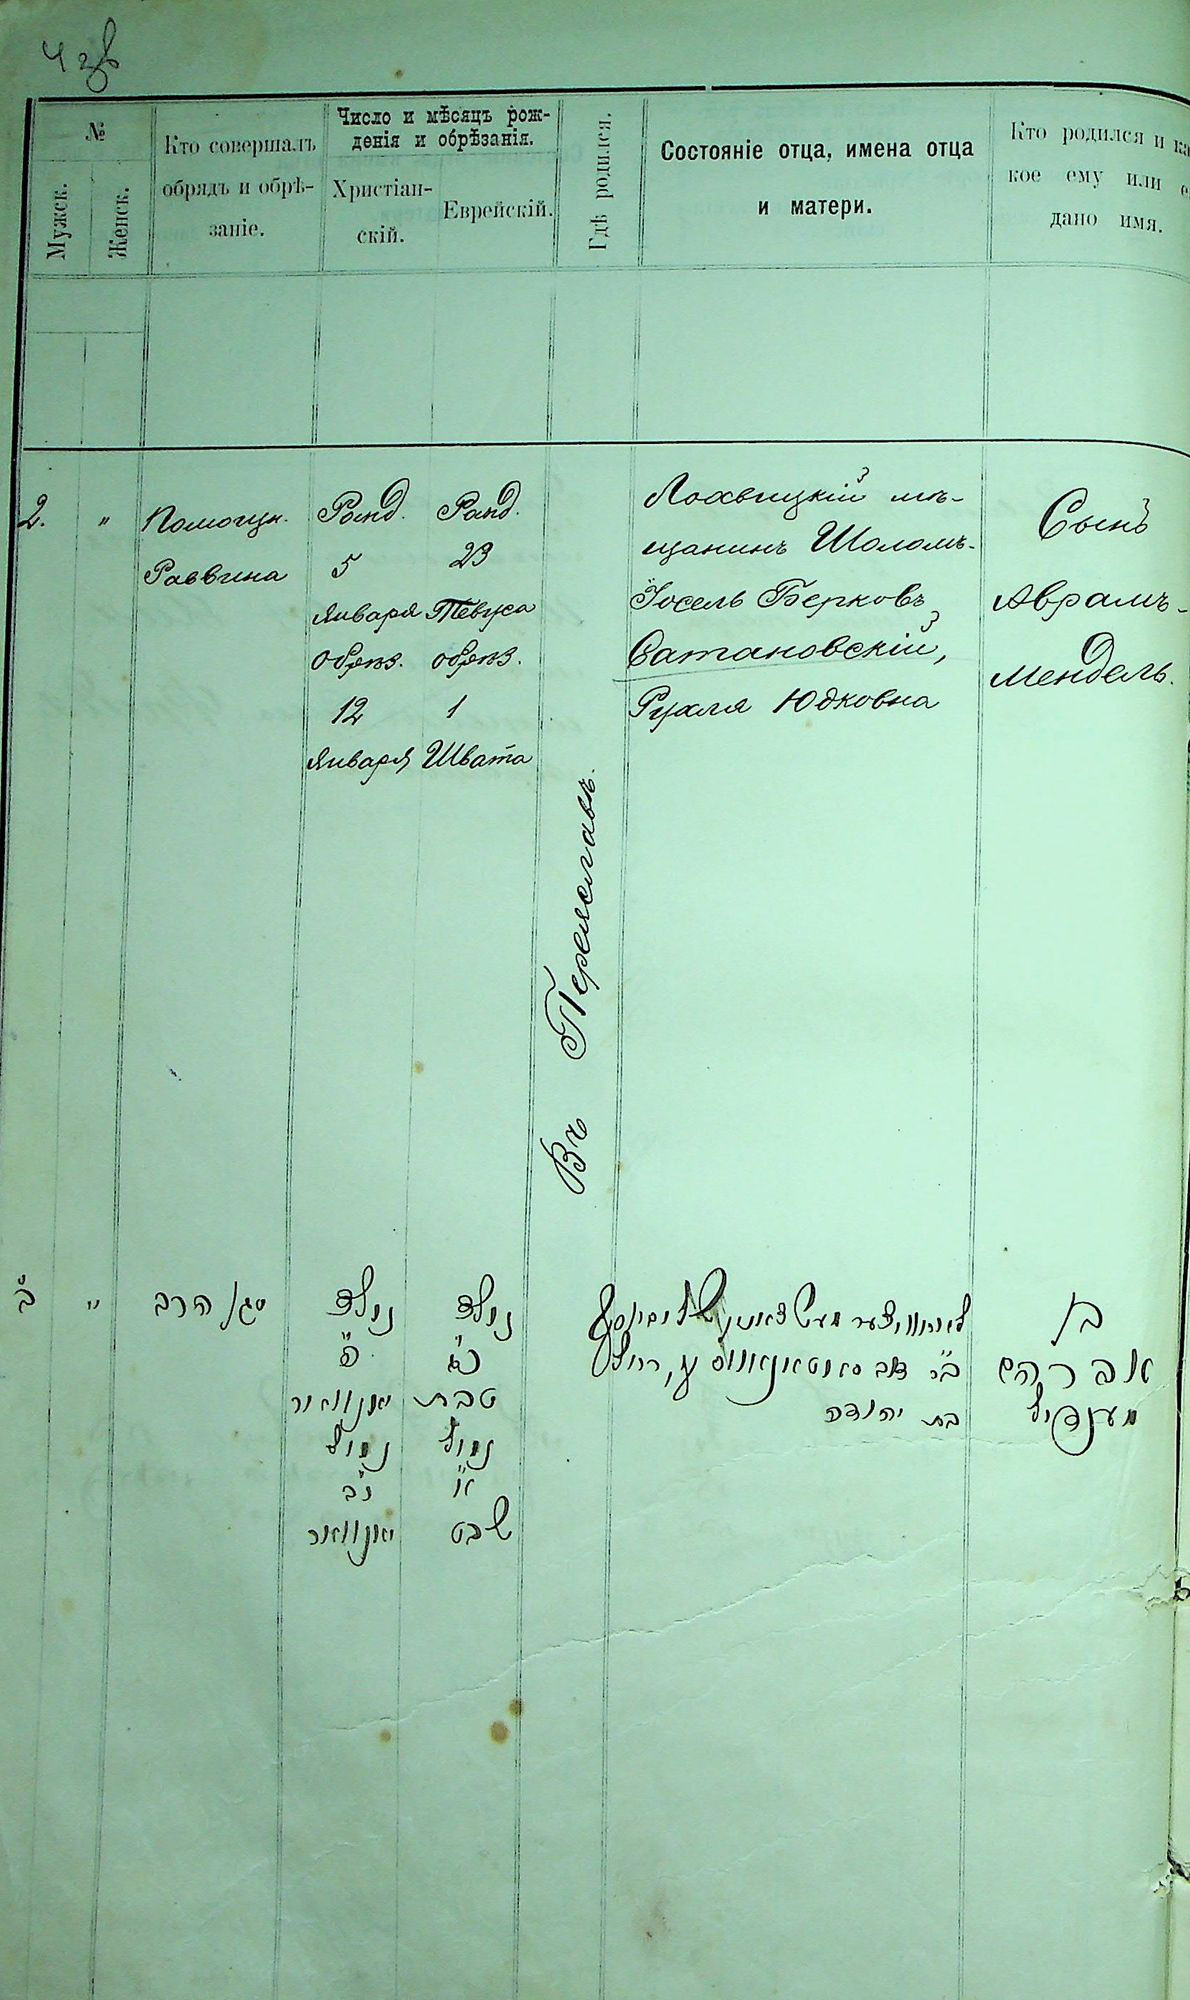 №
Мужск.
Женск.
Кто совершалъ
обрядъ и обрѣ-
заніе.
Число и мѣсяцъ рож-
денія и обрѣзанія.
Христіан-
скій.
Еврейскій.
Гдѣ родился.
Состояніе отца, имена отца
и матери.
Кто родился и ка
кое ему или е
дано имя.
2.
"
Помощн.
Раввина
Рожд.
5
Января
Обрѣз.
12
Января
Рожд.
23
Тевуса
обрѣз.
1
Швата
Въ Переяславѣ.
Лохвицкій мѣ-
щанинъ Шоломъ-
Іосель Берковъ
Сатановскій,
Рухля Юдковна
Сынъ
Аврамъ-
Мендель.
ב
"
סגן הרב
נולד
ה
יאנוואר
נמול
יב
יאנוואר
נולד
כג
טבת
נמול
א
שבט
ב"ר דוב סאטאנאווסקי, רחל
בת יהודה
בן
אברהם
מענדיל